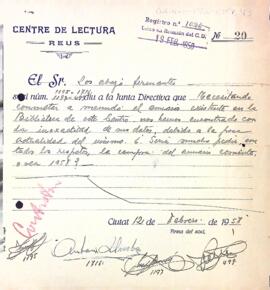 CENTRE DE LECTURA
REUS
Registro n.º 1096
Leido en Reunión del C.D.
18 FEB 1958
Nº 20
El Sr. Los abajo firmantes
soci núm. diu a la Junta Directiva que Necesitando
consultar a menudo el anuario existente en la
Biblioteca de este Centro, nos hemos encontrado
con la inexactitud de sus datos, debido a la poca
actualidad del mismo. Sería mucho pedir, en
tal respeto, la compra del anuario
para 1958?
Contestado
Ciutat 12 de Febrero de 1958
Firma del soci,
1195
1716
1197
498